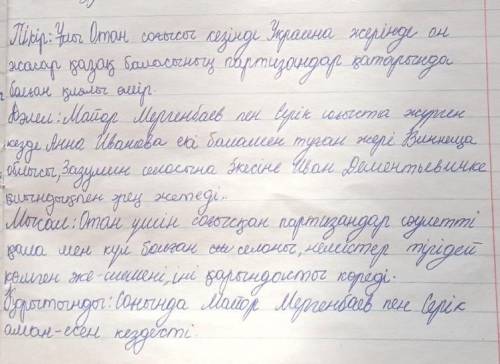 Пікір: Ұлы Отан соғысы кезінде Украина жерінде он
жасар қазақ баласының партизандар қатарында
болған қиылы өмір.
Дәлел: Майор Мергенбаев пен Серік соғыста жүрген
кезде Анна Ивановна екі баламен туған жері Винница
облысы, Зазулин селосына әкесіне Иван Дементьевичке
қиындықпен әрең жетеді.
Мысал: Отан үшін соғысқан партизандар сәулетті
қала мен күл болған селоны, немістер тірідей
көмген же-шешені, іні қарындасты көреді.
Қорытынды: Соңында Майор Мергенбаев пен Серік
аман-есен кездесті.